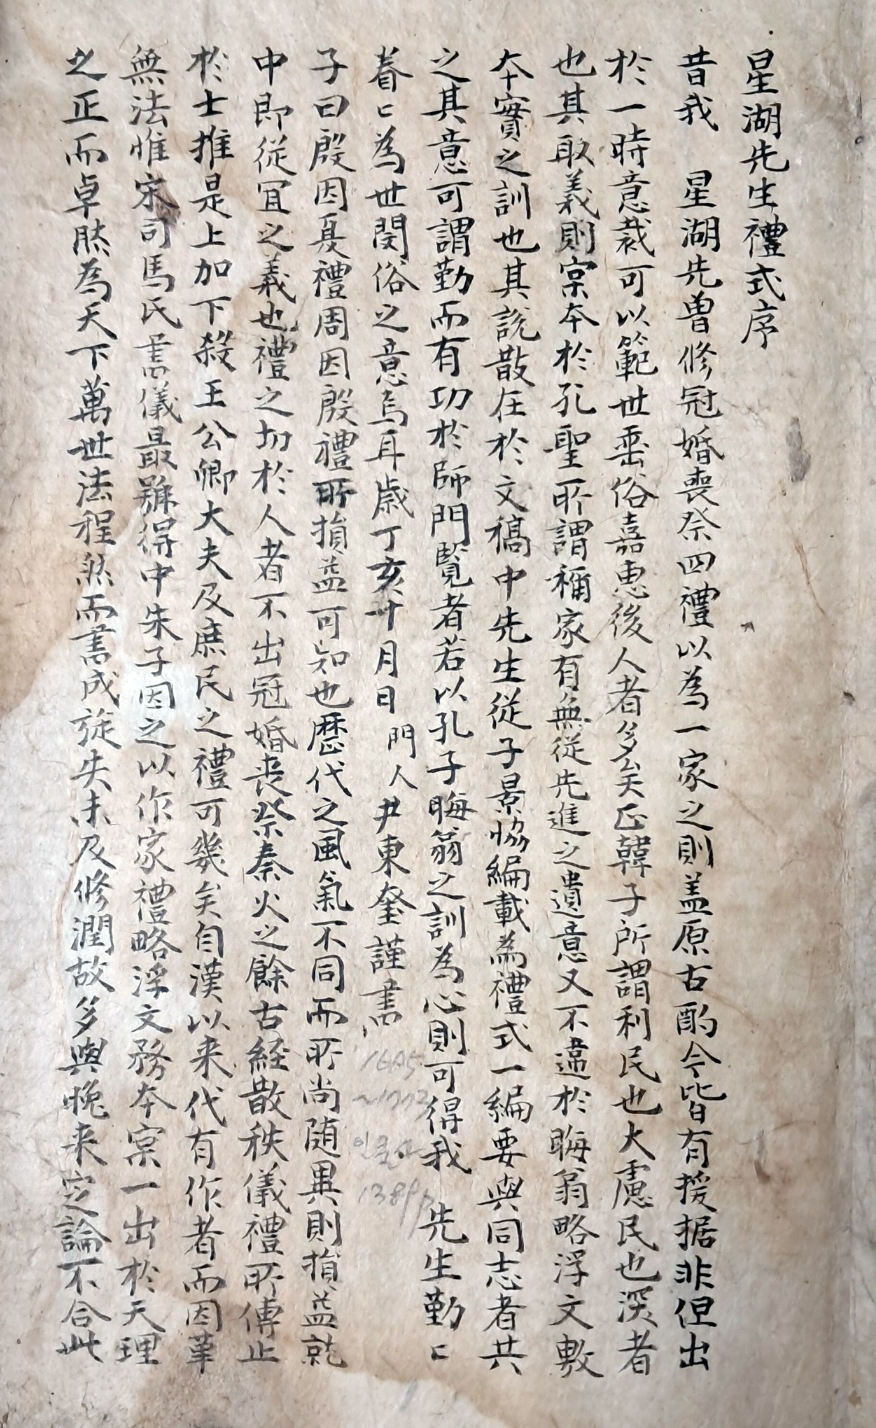 星湖先生禮式序
昔我 星湖先曽修冠婚喪祭四禮以為一家之則盖原古酌今皆有援据非但出
於一時意裁可以範世垂俗嘉惠後人者多矣正韓子所謂利民也大慮民也深者
也其取義則宲夲於孔聖所謂稱家有無從先進之遺意又不違於晦翁略浮文敷
夲實之訓也其說散在於文稿中先生從子景恊編載為禮式一編要與同志者共
之其意可謂勤而有功於師門覽者若以孔子晦翁之訓為心則可得我 先生勤〻
眷〻為世閔俗之意焉耳歲丁亥十月日 門人尹東奎謹書
子曰殷因夏禮周因殷禮所損益可知也歷代之風氣不同而所尚随異則損益就
中即從冝之義也禮之切於人者不出冠婚喪祭秦火之餘古経散秩儀禮所傳止
於士推是上加下殺王公卿大夫及庶民之禮可幾矣自漢以来代有作者而因革
無法惟宋司馬氏書儀最號得中朱子因之以作家禮略浮文務夲宲一出於天理
之正而卓然為天下萬世法程然而書成旋失未及修潤故多與晚来定論不合此